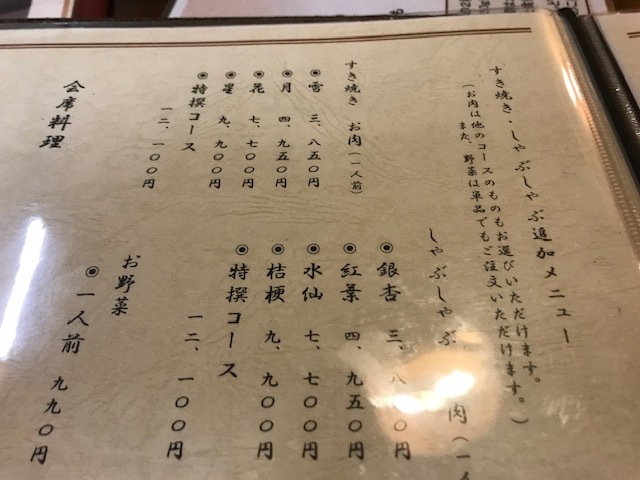 すき焼き・しゃぶしゃぶ追加メニュー
(お肉は他のコースのものもお選びいただけます。
また、野菜は単品でもご注文いただけます。)
すき焼き お肉(一人前)
◉雪 三、八五〇円
◉月 四、九五〇円
◉花 七、七〇〇円
◉星 九、九〇〇円
◉特撰コース
一二、一〇〇円
しゃぶしゃぶ 肉(一人
◉銀杏 三、八 〇円
◉紅葉 四、九五〇円
◉水仙 七、七〇〇円
◉桔梗 九、九〇〇円
◉特撰コース
一二、一〇〇円
お野菜
◉一人前 九九〇円
会席料理